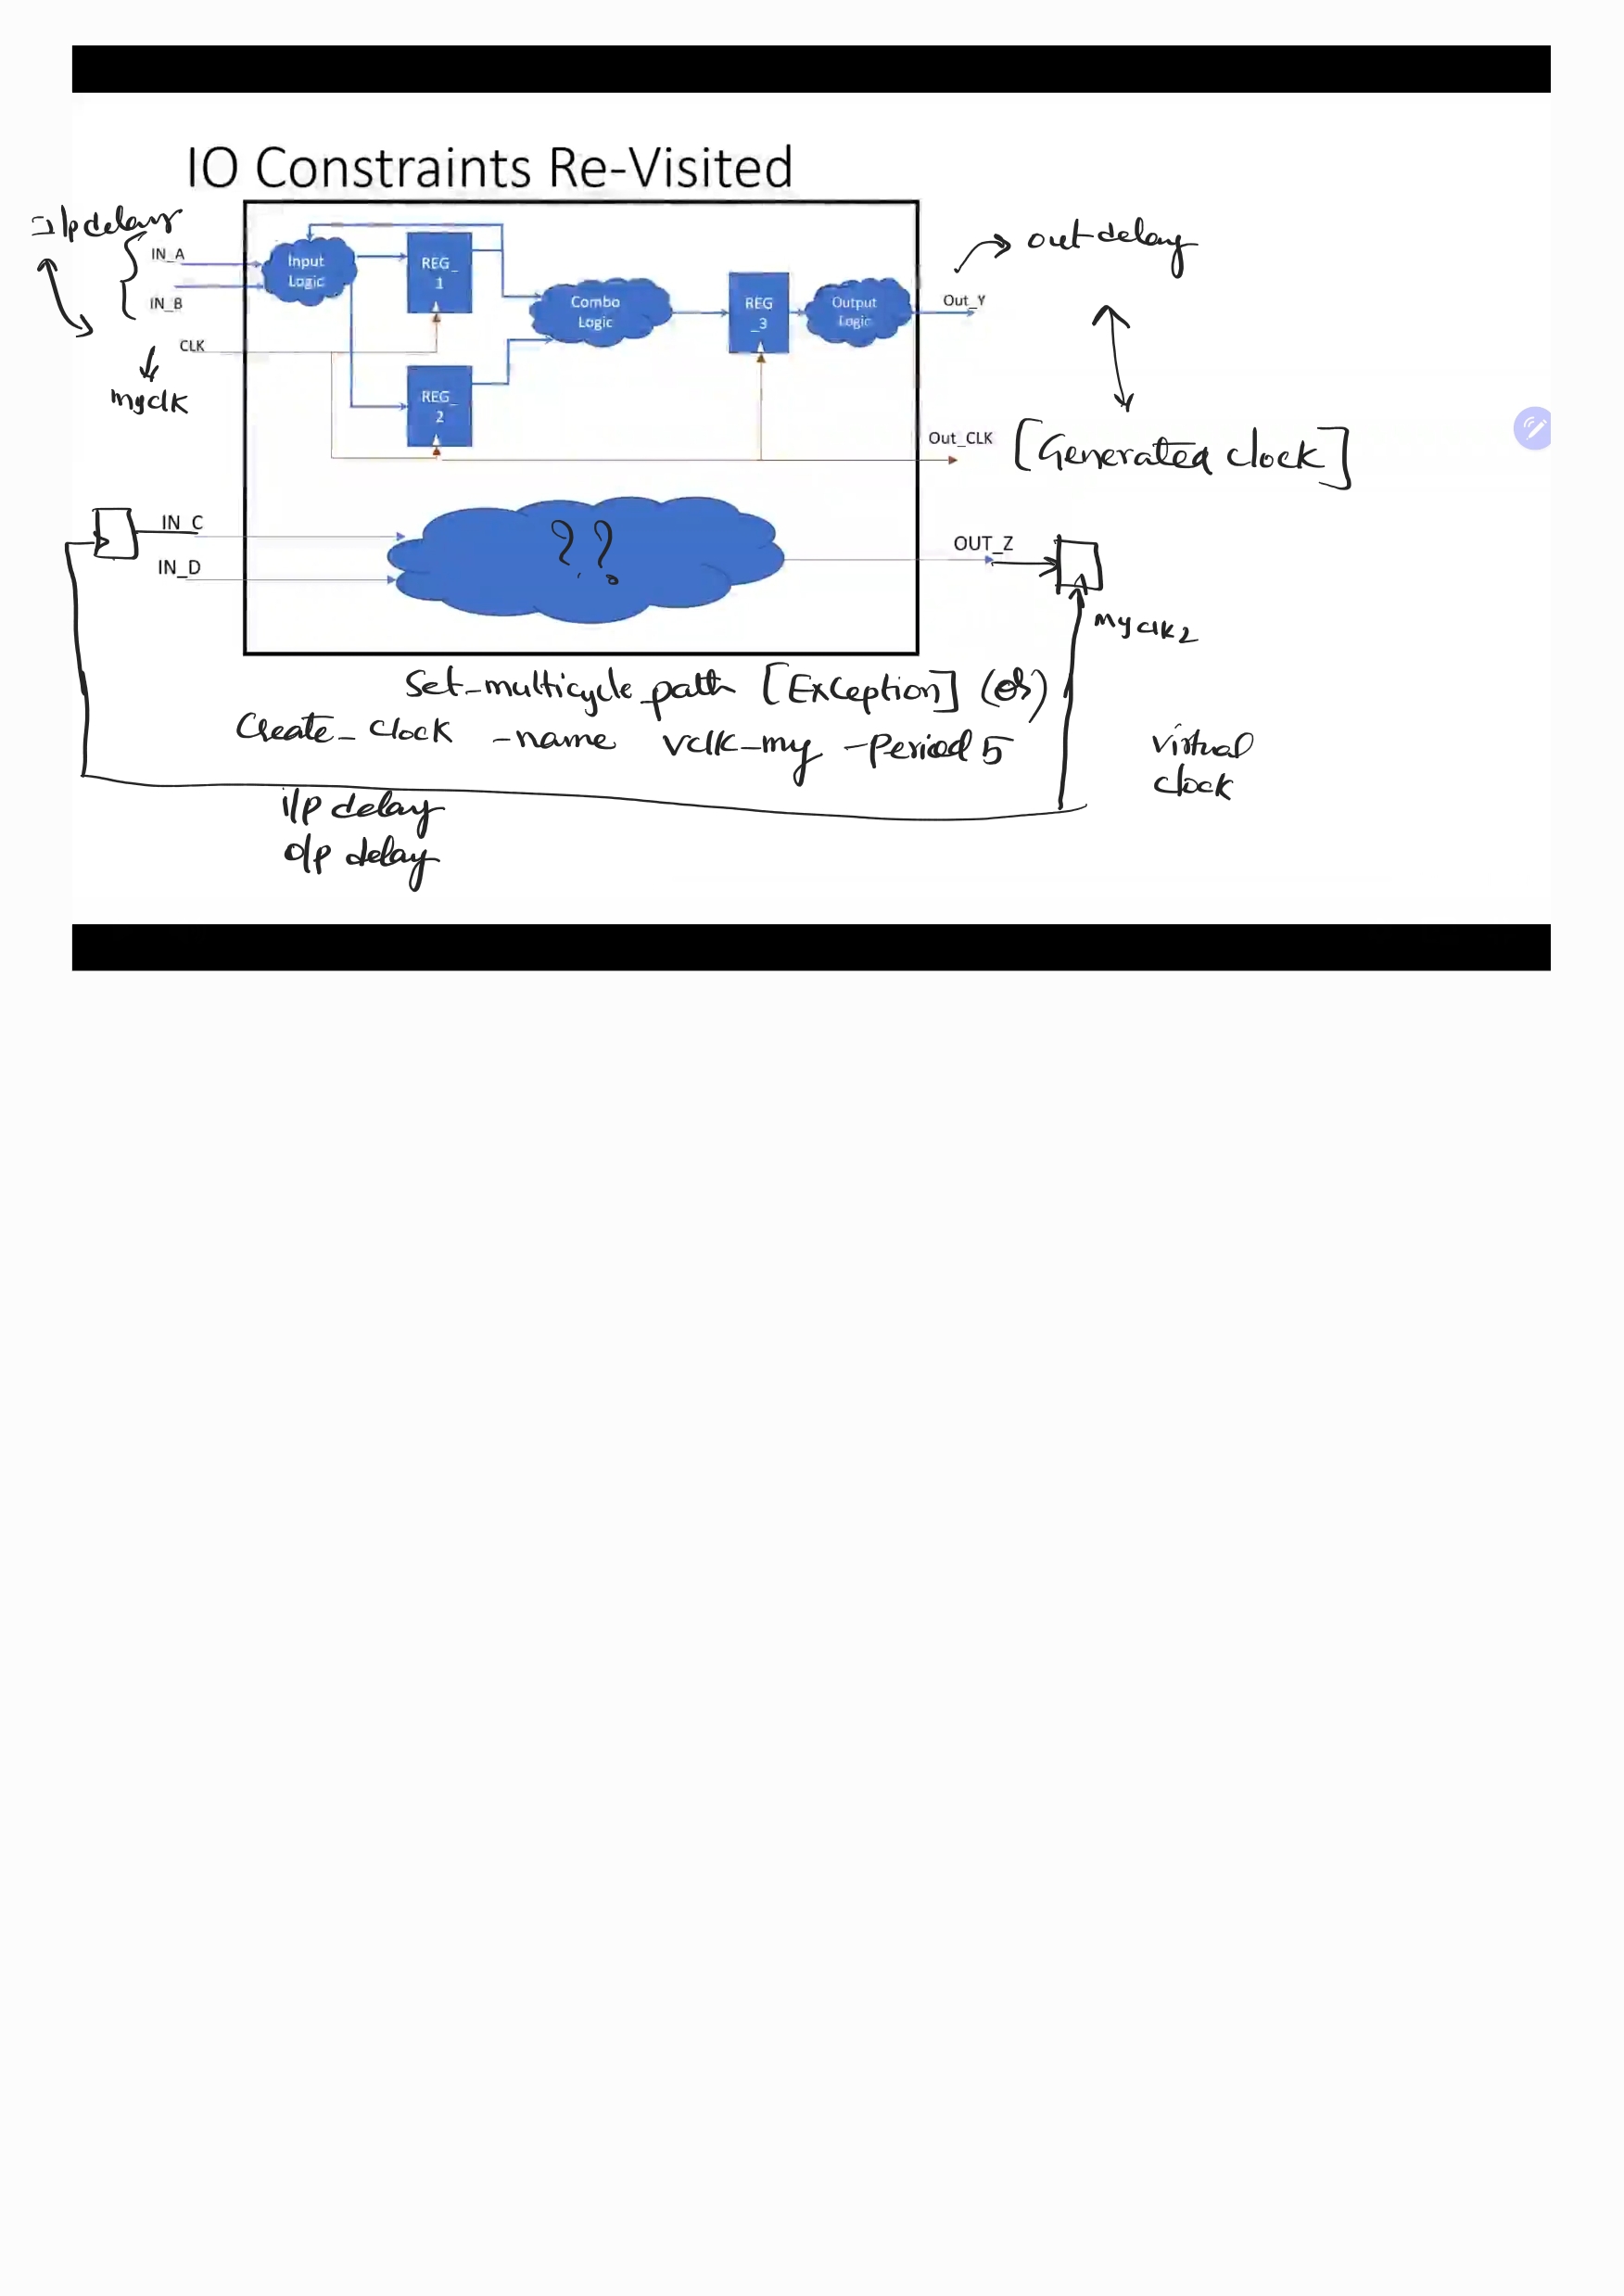 IO Constraints Re-Visited
I/p delay
out delay
IN_A
IN_B
CLK
myclk
Input
Logic
REG_
1
REG_
2
Combo
Logic
REG
_3
Output
Logic
Out_Y
Out_CLK
[Generated clock]
IN_C
IN_D
??
OUT_Z
myclk2
Set_multicycle_path [Exception] (or)
Create_clock -name vclk_my -Period 5
virtual
clock
i/p delay
o/p delay